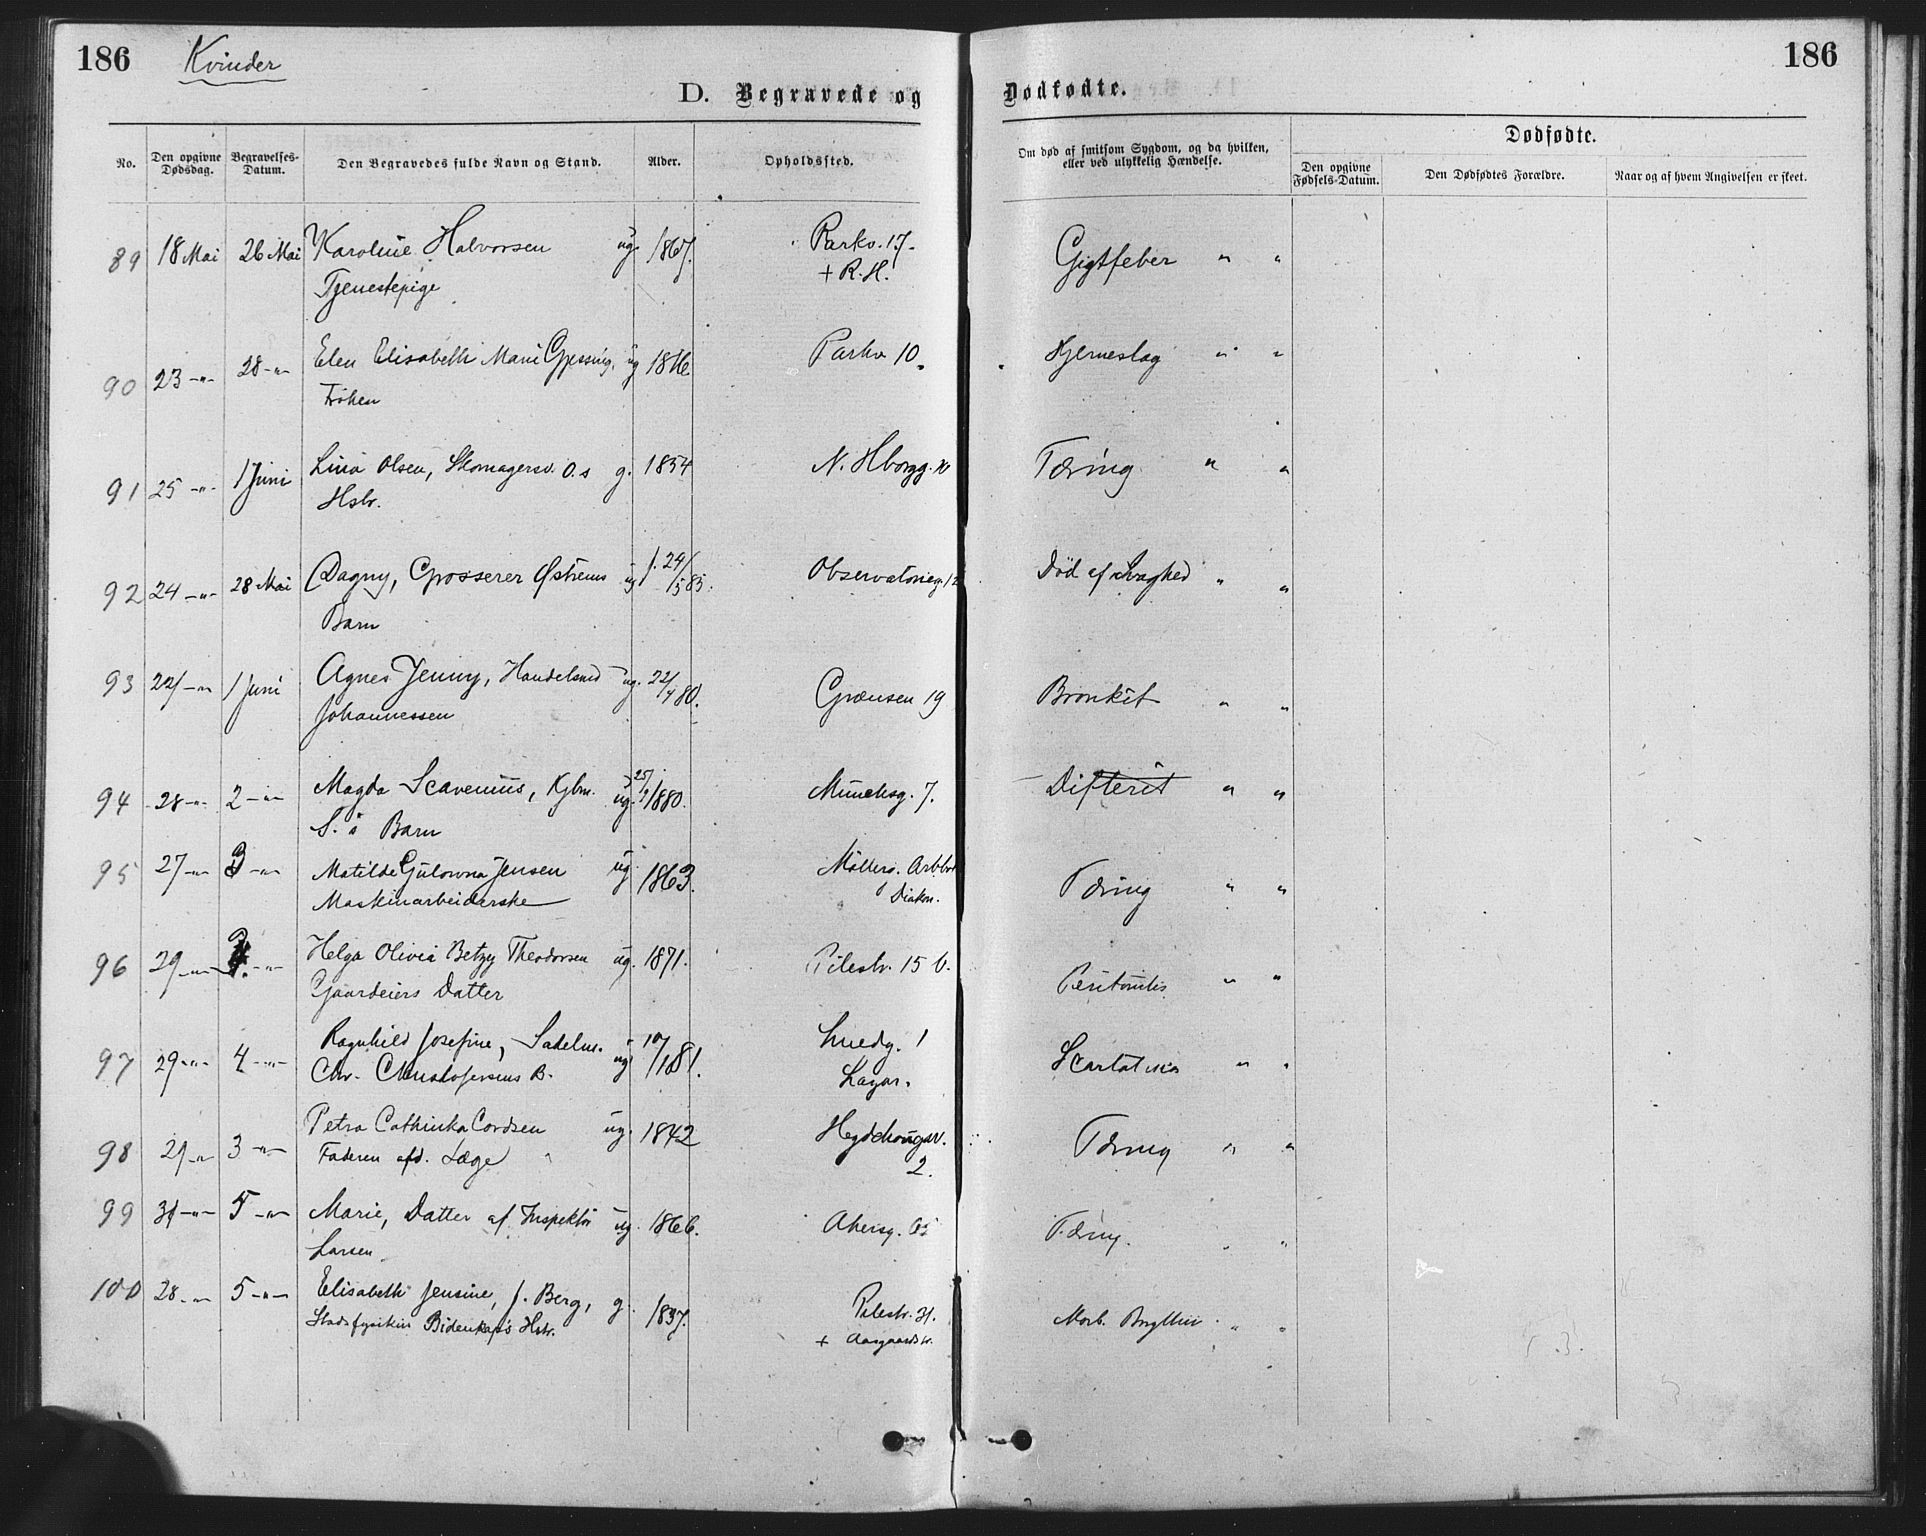 186 Kvinder 186
D. Begravede og Dødfødte.
No. Den opgivne Dødsdag. Begravelses-Datum. Den Begravedes fulde Navn og Stand. Alder. Opholdssted. Om død af smitsom Sygdom, og da hvilken, eller ved ulykkelig Hændelse. Dødfødte.
Den opgivne Fødsels-Datum. Den Dødfødtes Forældre. Naar og af hvem Angivelsen er skeet.
89 18 Mai 26 Mai Karoline Halvorsen ug. 1867. Parkv. 17. Gigtfeber " "
Tjenestepige + R.H.
90 23 -"- 28 -"- Elen Elisabeth Marie Gjessing, ug 1816 Parkv 10. Hjerneslag " "
Frøken
91 25 -"- 1 Juni Lina Olsen, Skomagersv. O.s g. 1854 N. Hborgg. Tæring " "
Hstr.
92 24 -"- 28 Mai Dagny, Grosserer Østrems ug f. 24/5 85. Observatorieg. 12 Død af Svaghed " "
Barn
93 22 -"- 1 Juni Agnes Jenny, Handelsmd ug. 22/4 80. Grænsen 19 Bronkit " "
Johannessen
94 28 -"- 2 -"- Magda Scavenius, Kjbm. ug. 25/9 1880. Munchsg. 7. Difterit " "
S.s Barn
95 27 -"- 3 -"- Matilde Gulowna Jensen ug. 1863. Møllerg. Tæring " "
Maskinarbeiderske Diakon.
96 29 -"- -"- Helga Olivia Betzy Theodorsen ug. 1871. Pilestr. 15 b. Peritonitis " "
Gaardeiers Datter
97 29 -"- 4 -"- Ragnhild Josefine, Sadelm. ug 10/1 81. Smedg. 1 Scarlatina " "
Chr. Christofersens B. Lazar.
98 29 -"- 3 -"- Petra Cathinka Cordsen ug. 1842 Hegdehougsv. Tæring " "
Faderen afd. Læge 2.
99 31 -"- 5 -"- Marie, Datter af Inspektør ug. 1866. Akersg. Tæring. " "
Larsen
100 28 -"- 5 -"- Elisabeth Jensine, f. Berg, g. 1837. Pilestr. Morb. Brigthii " "
Stadsfysikus Bidenkap's Hstr. + Aasgaards